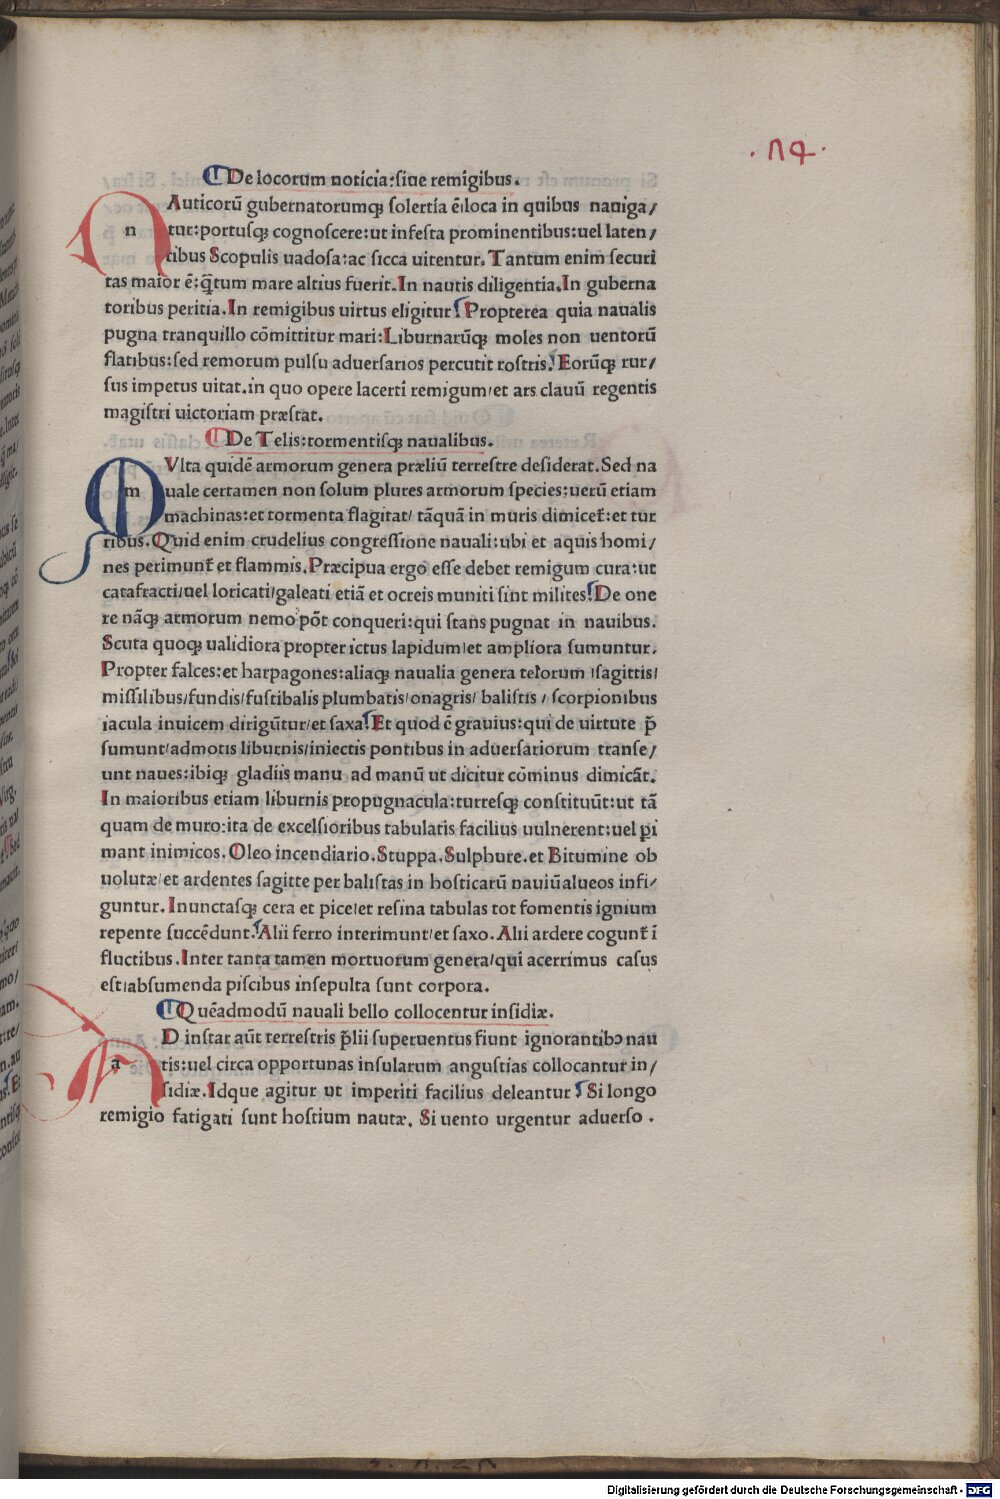 De locorum noticia:ſiue remigibus.
NAuticorū gubernatorumqꝫ ſolertia ē:loca in quibus nauiga/
n tur:portuſqꝫ cognoſcere:ut infeſta prominentibus:uel laten/
tibus Scopulis uadoſa:ac ſicca uitentur. Tantum enim ſecuri
tas maior ē:q̄tum mare altius fuerit.In nautis diligentia.In guberna
toribus peritia.In remigibus uirtus eligitur Propterea quia naualis
pugna tranquillo cōmittitur mari:Liburnarūqꝫ moles non uentorū
flatibus:ſed remorum pulſu aduerſarios percutit roſtris. Eorūqꝫ rur/
ſus impetus uitat.in quo opere lacerti remigum/et ars clauū regentis
magiſtri uictoriam præſtat.
De Telis:tormentiſqꝫ naualibus.
MVlta quidē armorum genera præliū terreſtre deſiderat.Sed na
m uale certamen non ſolum plures armorum ſpecies:uerū etiam
machinas:et tormenta flagitat/ tāquā in muris dimicet̄:et tur
ribus.Quid enim crudelius congreſſione nauali:ubi et aquis homi/
nes perimunt̄ et flammis.Præcipua ergo eſſe debet remigum cura:ut
catafracti/uel loricati/galeati etiā et ocreis muniti ſint milites.De one
re nāqꝫ armorum nemo pōt conqueri:qui ſtans pugnat in nauibus.
Scuta quoqꝫ ualidiora propter ictus lapidum/et ampliora ſumuntur.
Propter falces:et harpagones:aliaqꝫ naualia genera telorum /ſagittis/
miſſilibus/fundis/fuſtibalis plumbatis/onagris/ baliſtis / ſcorpionibus
iacula inuicem dirigūtur/et ſaxa.Et quod ē grauius:qui de uirtute p̄
ſumunt/admotis liburnis/iniectis pontibus in aduerſariorum tranſe/
unt naues:ibiqꝫ gladiis manu ad manū ut dicitur cōminus dimicāt.
In maioribus etiam liburnis propugnacula:turreſqꝫ conſtituūt:ut tā
quam de muro:ita de excelſioribus tabulatis facilius uulnerent:uel ꝑi
mant inimicos.Oleo incendiario.Stuppa.Sulphure.et Bitumine ob
uolutæ/et ardentes ſagitte per baliſtas in hoſticarū nauiū alueos infi/
guntur.Inunctaſqꝫ cera et pice/et reſina tabulas tot fomentis ignium
repente ſuccēdunt.Alii ferro interimunt/et ſaxo.Alii ardere cogunt̄ ī
fluctibus.Inter tanta tamen mortuorum genera/qui acerrimus caſus
eſt/abſumenda piſcibus inſepulta ſunt corpora.
Quēadmodū nauali bello collocentur inſidiæ.
AD inſtar aūt terreſtris p̄lii ſuperuentus fiunt ignorantibꝰ nau
a tis:uel circa opportunas inſularum anguſtias collocantur in/
ſidiæ.Idque agitur ut imperiti facilius deleantur Si longo
remigio fatigati ſunt hoſtium nautæ. Si uento urgentur aduerſo.
Digitalisierung gefördert durch die Deutsche Forschungsgemeinschaft - DFG